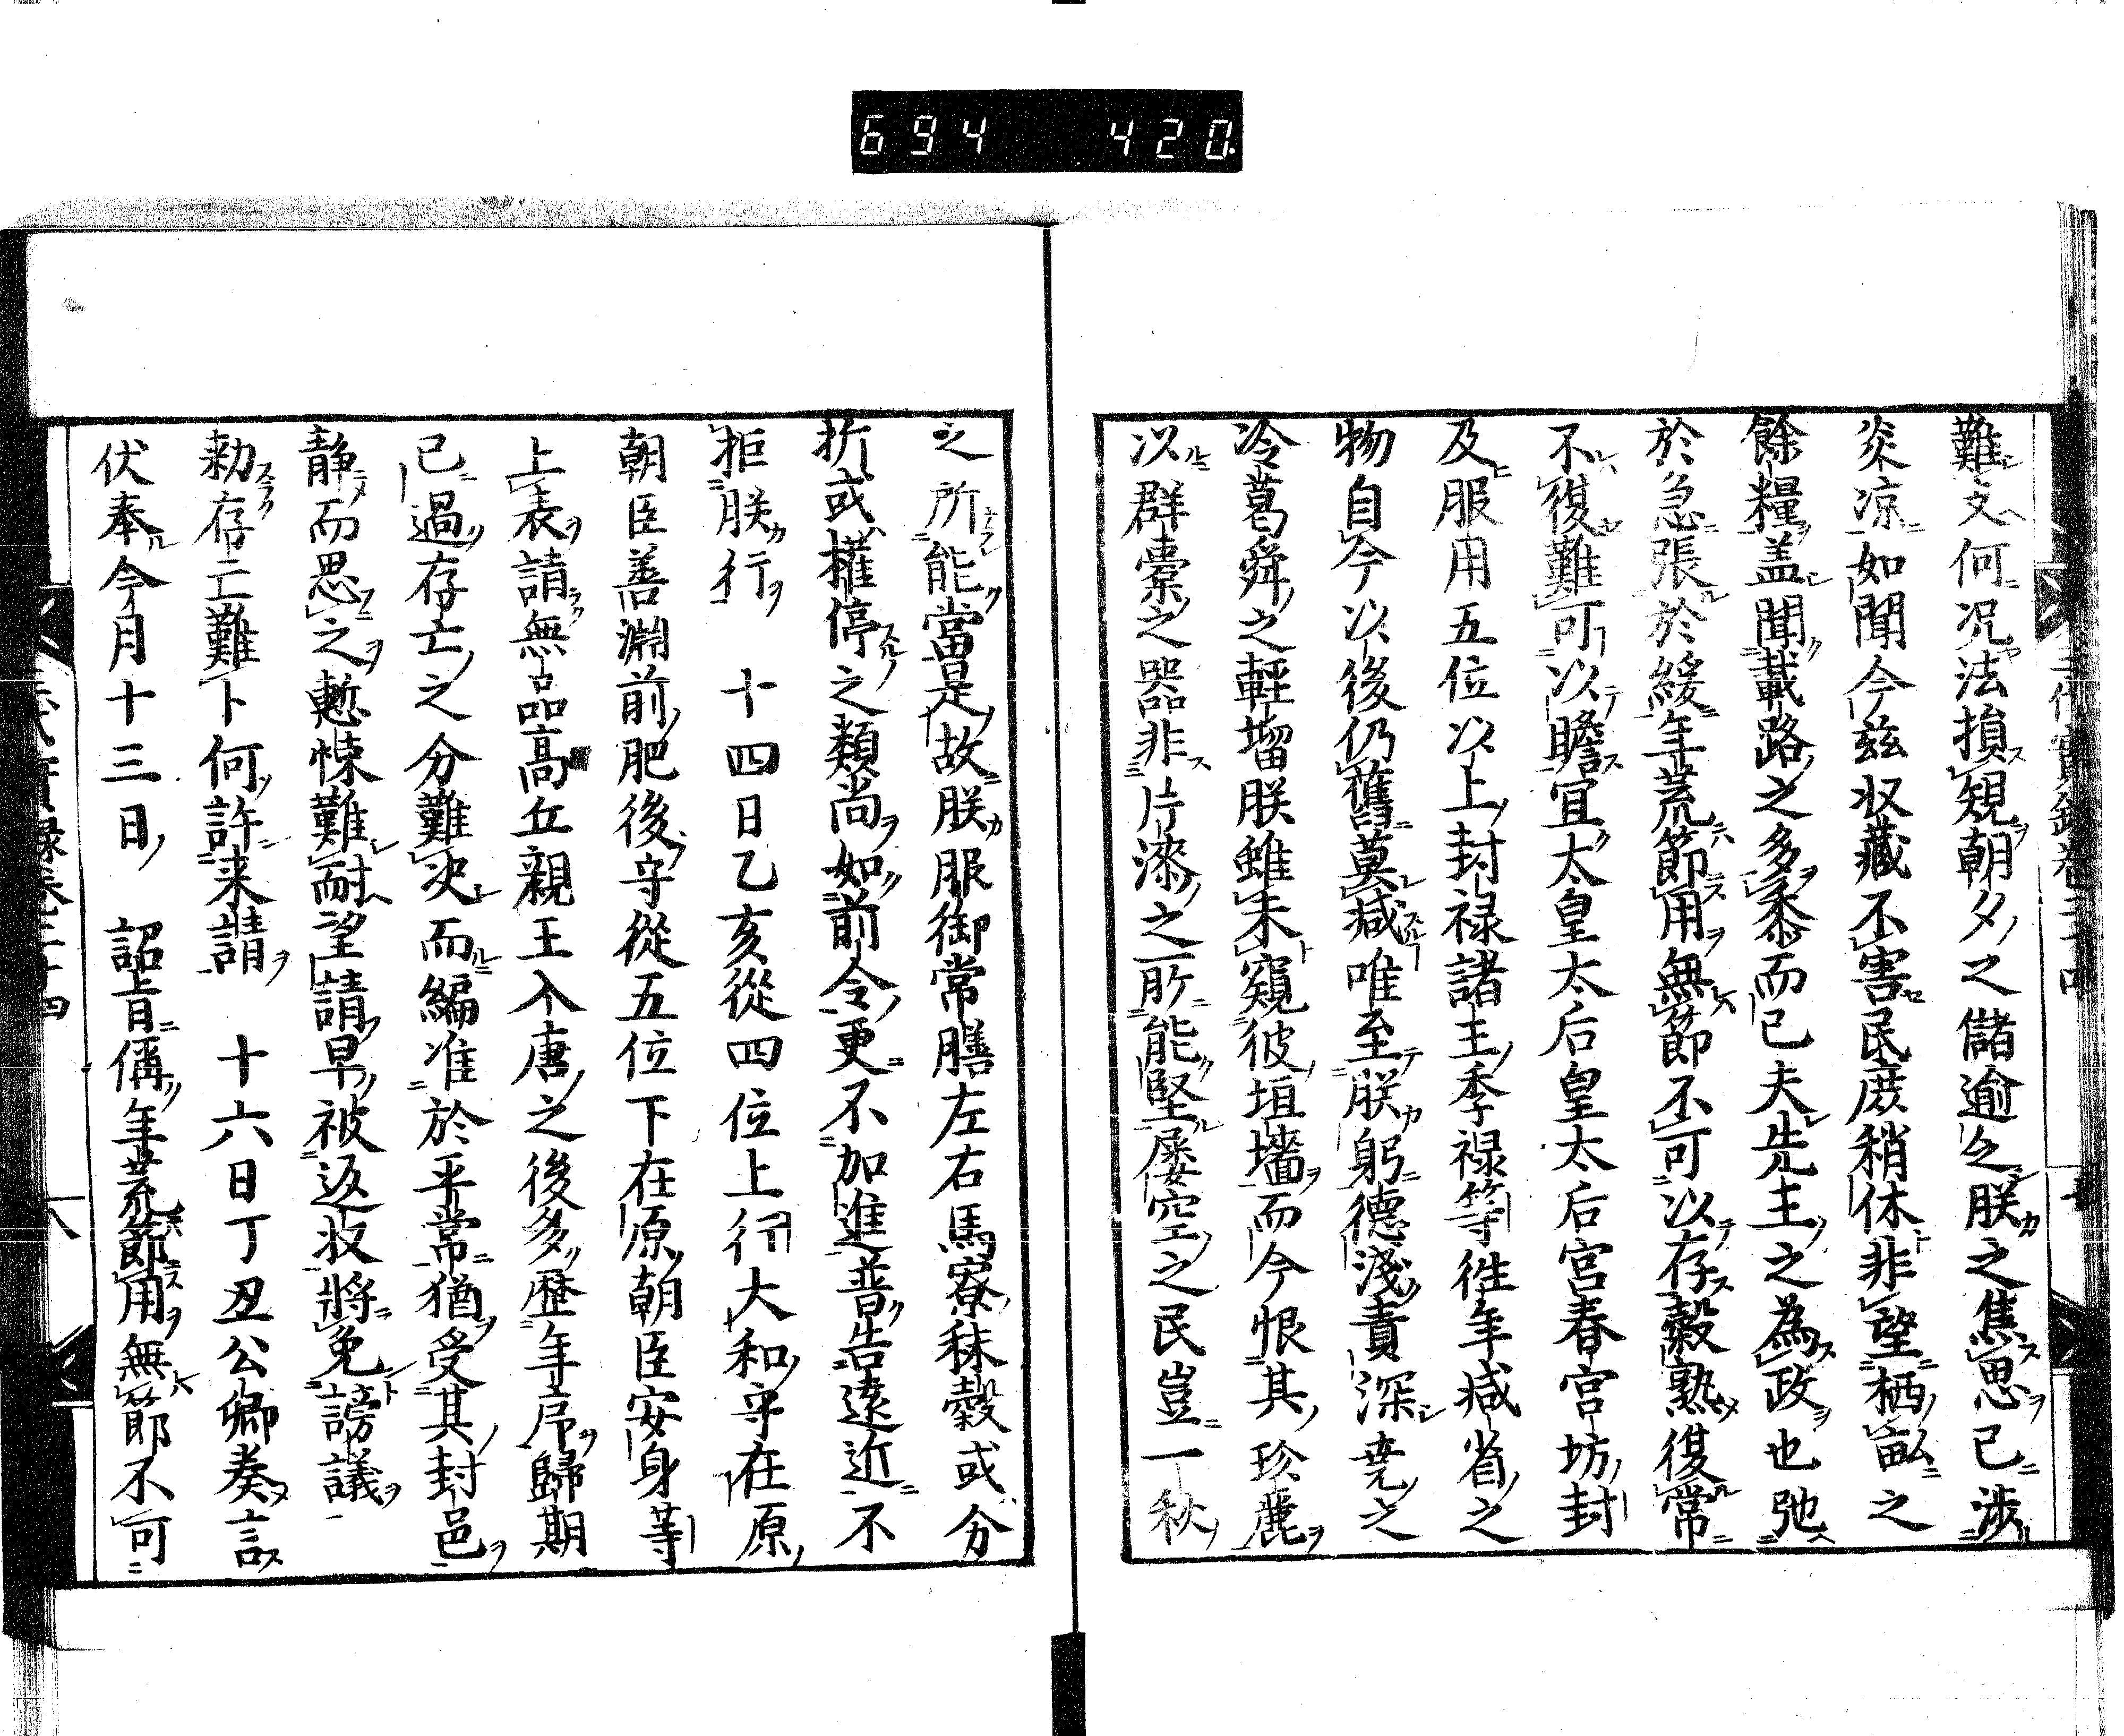 694 420
難支何況法損規朝夕之儲逾乏朕之焦思已渉
炎凉如聞今茲収藏不害民庶稍休非望栖畝之
餘糧盖聞載路之多黍而已夫先王之為政也弛
於急張於緩年荒節用無節不可以存穀熟復常
不復難可以瞻宜太皇太后皇太后宮春宮坊封
及服用五位以上封禄諸王季禄等徃年减省之
物自今以後仍舊莫减唯至朕躬德淺責深尭之
冷葛舜之輕塯朕雖未窺彼垣墻而今恨其珍麗
以群棠之器非片漆之所能堅屡空之民豈一秋
之所能當是故朕服御常膳左右馬寮秣穀或分
折或權停之類尚如前令更不加進普告遠近不
拒朕行 十四日乙亥從四位上行大和守在原
朝臣善淵前肥後守從五位下在原朝臣安身等
上表請無品高丘親王入唐之後多歷年序歸期
已過存亡之分難决而編准於平常猶受其封邑
静而思之慙悚難耐望請早被返收將免謗議
勅存亡難卜何許来請 十六日丁丑公卿奏言
伏奉今月十三日 詔旨偁年荒節用無節不可